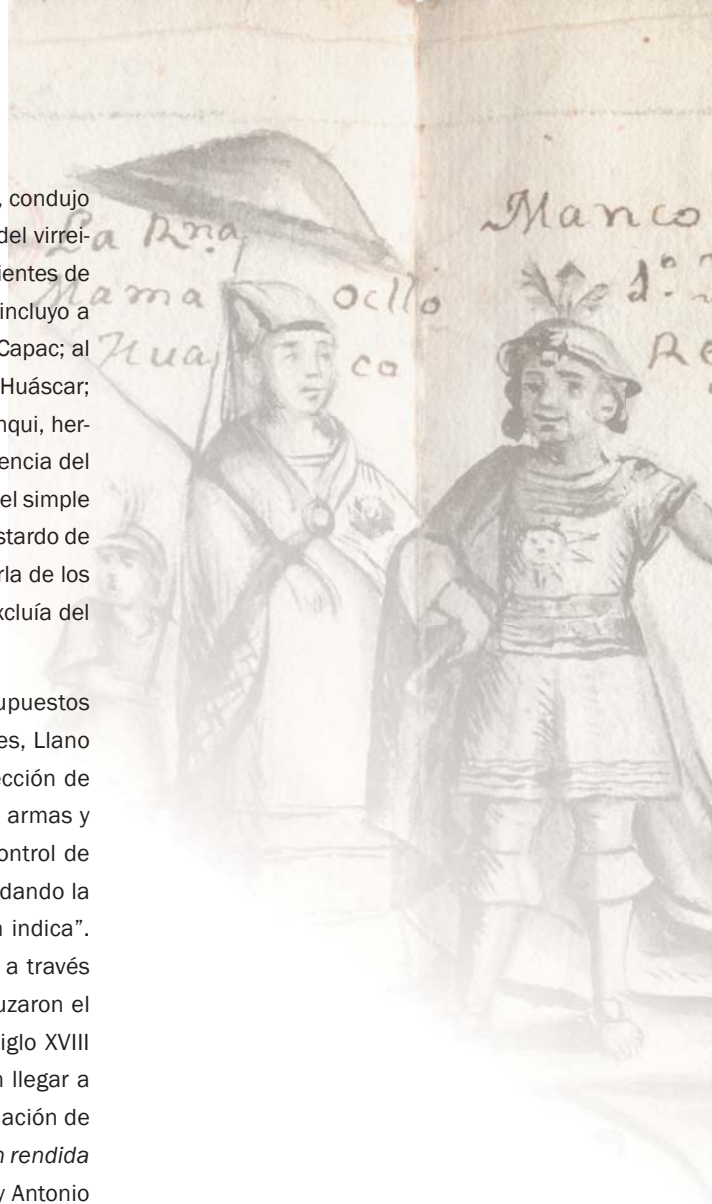 , condujo
del virrei-
ientes de
incluyo a
Capac; al
Huáscar;
nqui, her-
encia del
el simple
stardo de
rla de los
xcluía del
upuestos
es, Llano
ección de
armas y
ontrol de
dando la
indica”.
a través
uzaron el
iglo XVIII
llegar a
ación de
rendida
y Antonio
La Rna
Mama Ocllo
Hua co
Manco
1º.
Re